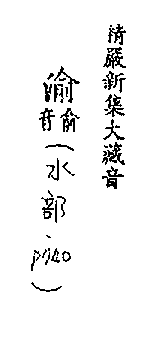 精嚴新集大藏音
渝音俞(水部、p740)